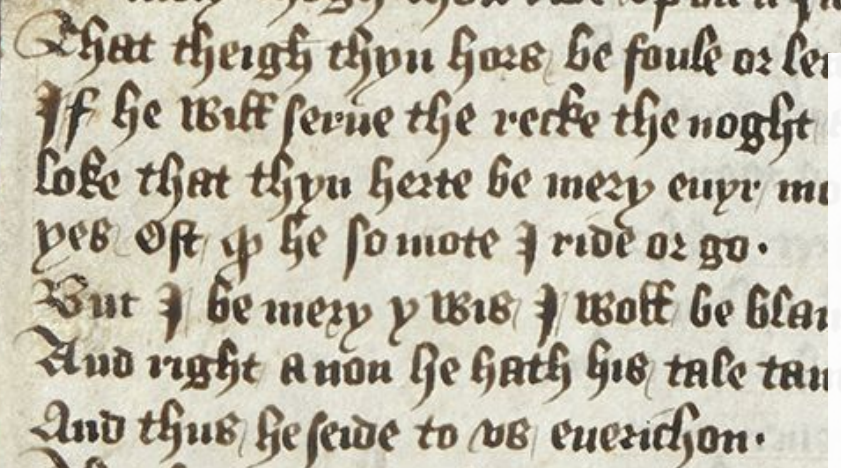 That theigh thyn hors be foule or
If he will serue the recke the noght
loke that thyn herte be mery euyr
yes Ost he so mote I ride or go.
But I be mery y wis I woll be
And right anon he hath his tale
And thus he seide to vs euerichon.